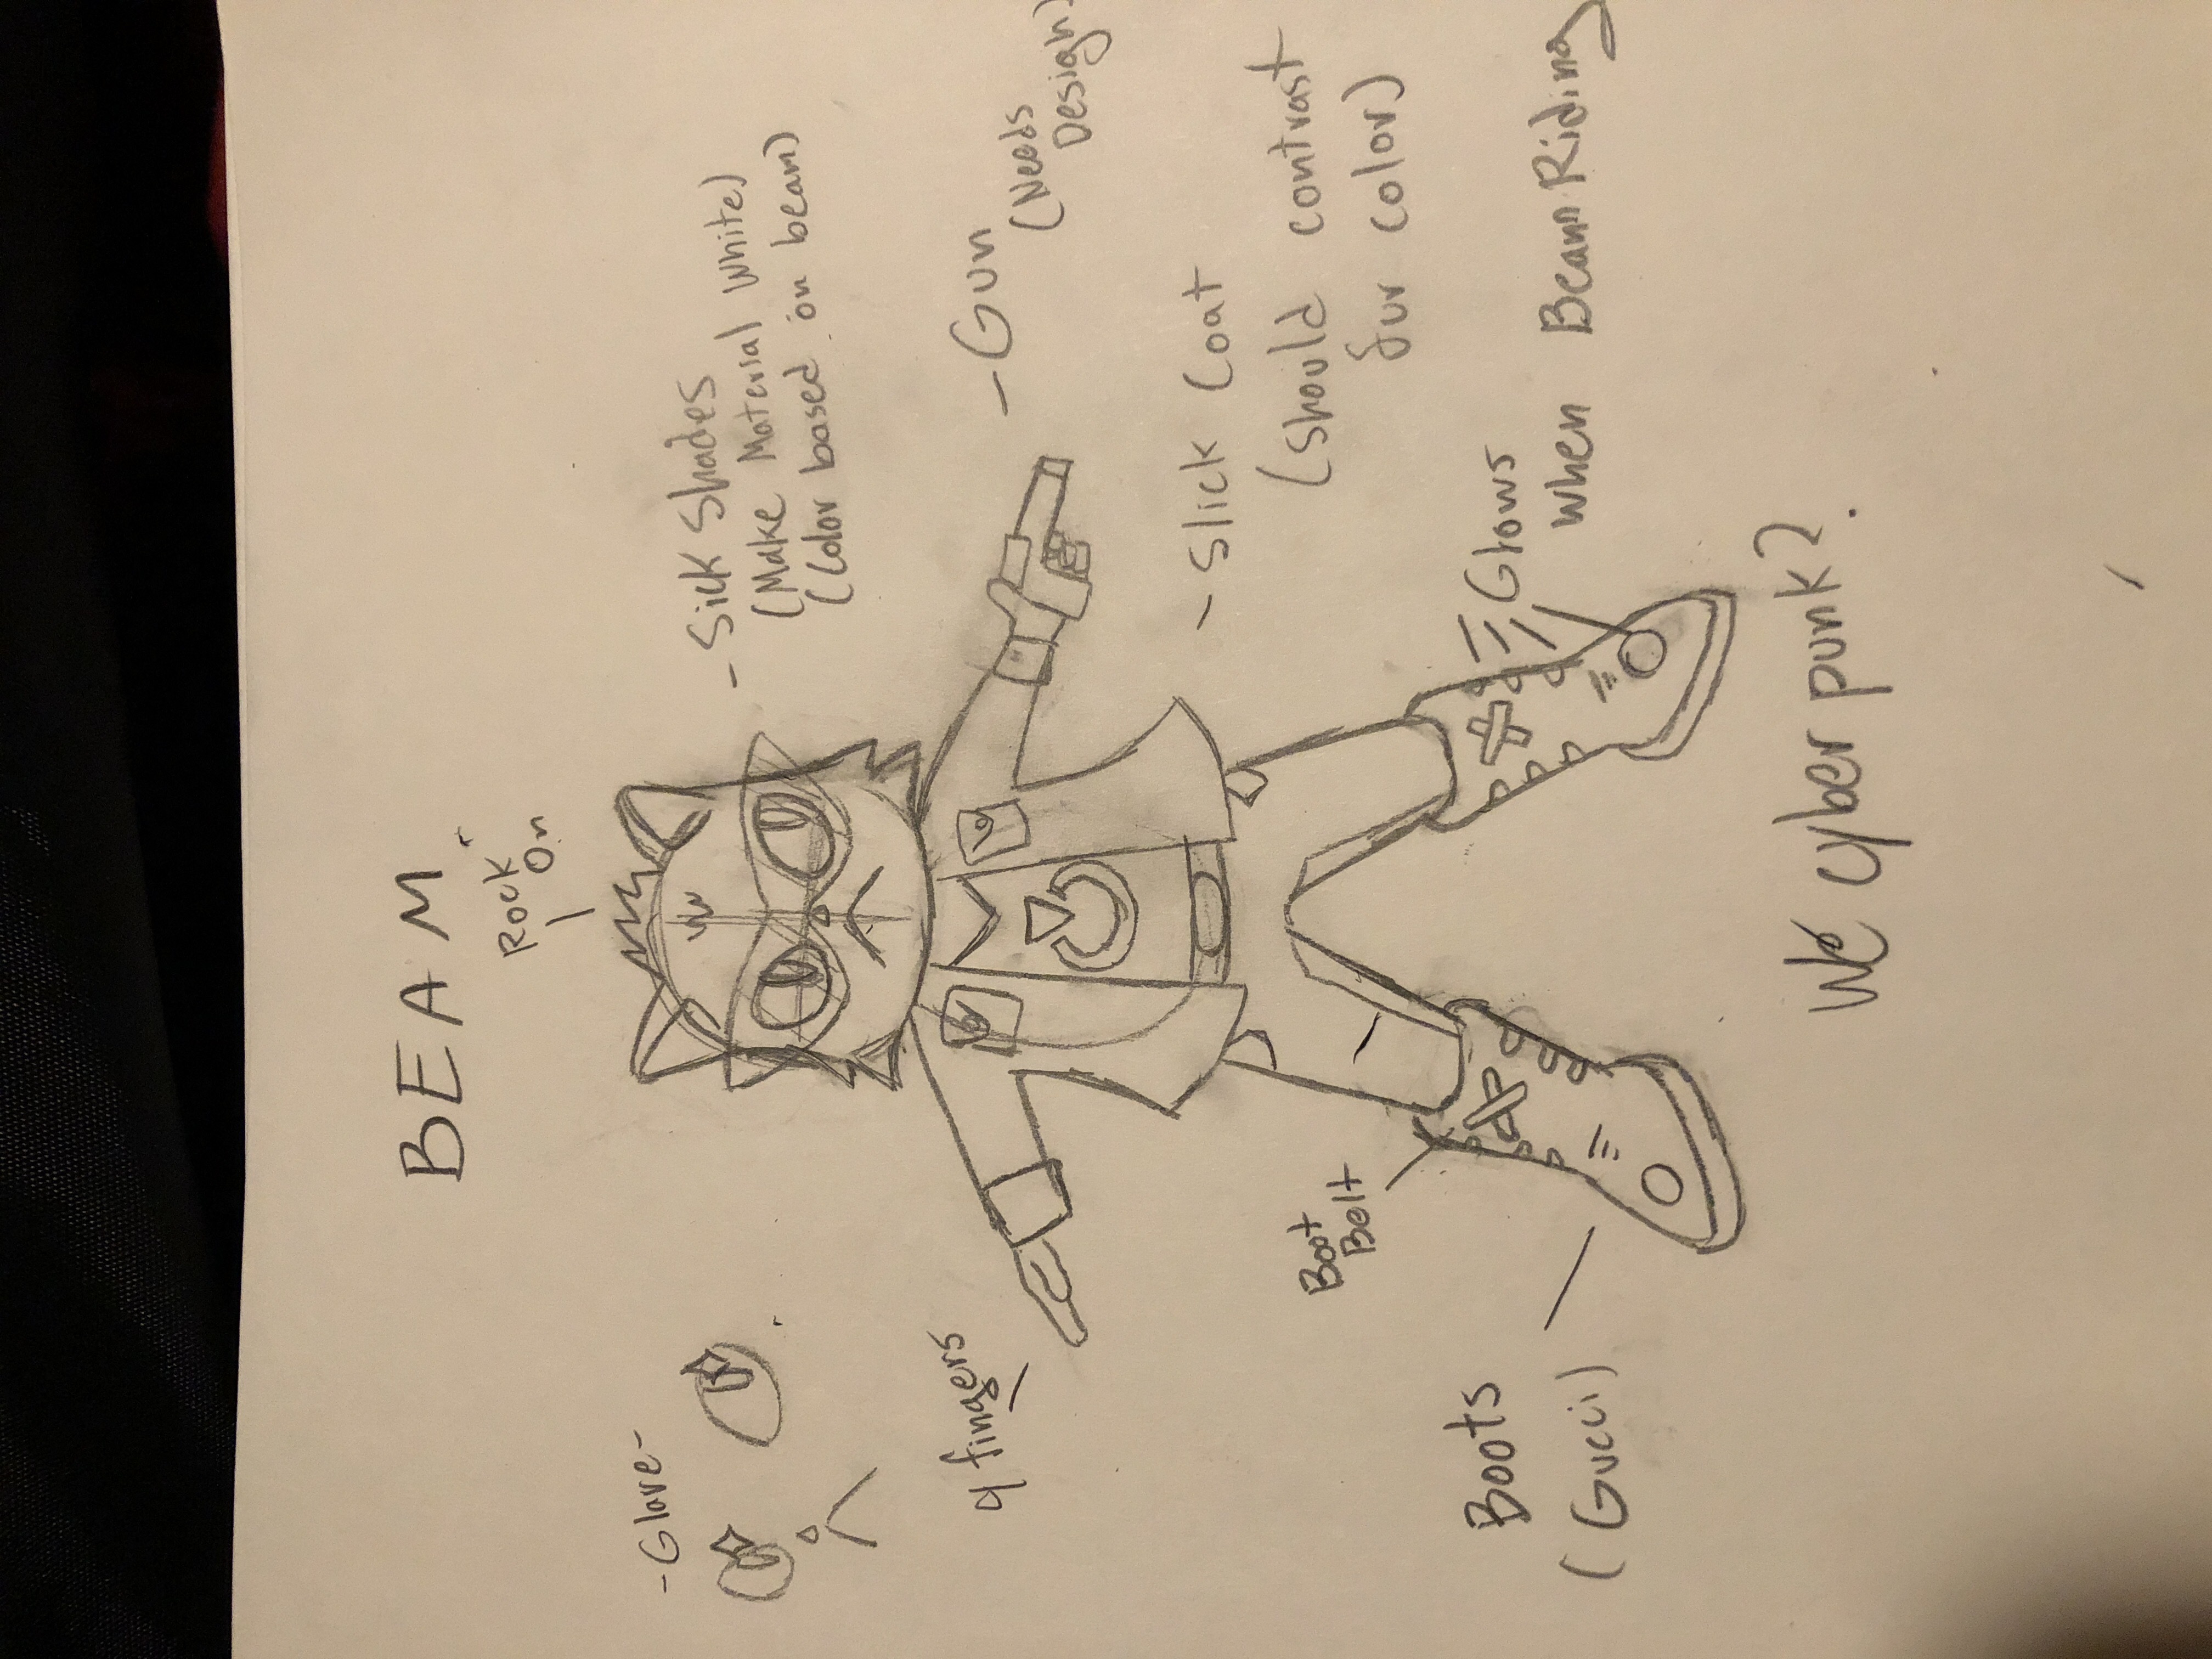 BEAM
Rock
On
- Sick Shades
(Make Material White)
(Color based on beam)
- Glare -
- Gun
(Needs
Design)
4 fingers
- Slick Coat
(Should contrast
fur color)
Boot
Belt
Glows
When Beam Riding
Boots
(Gucci)
We Cyber punk?